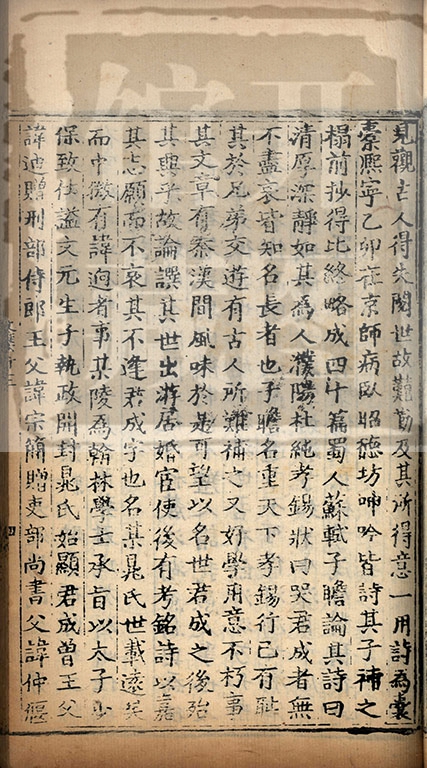 見觀古人得失閱世故艱勤及其所得意一用詩為囊
橐熙寧乙卯在京師病臥昭德坊呻吟皆詩其子補之
榻前抄得比終略成四十篇蜀人蘇軾子瞻論其詩曰
清厚深靜如其為人濮陽杜純孝錫狀曰哭君成者無
不盡哀皆知名長者也子瞻名重天下孝錫行己有恥
其於兄弟交遊有古人所難補之又好學用意不朽事
其文章有秦漢間風味於是可望以名世君成之後殆
其興乎故論譔其世出游居婚宦使後有考銘詩以嘉
其志願而不哀其不逢君成字也名某晁氏世載遠矣
而中微有諱迥者事某陵為翰林學士承旨以太子少
保致仕謚文元生子執政開封晁氏始顯君成曾王父
諱迪贈刑部侍郎王父諱宗簡贈吏部尚書父諱仲偃